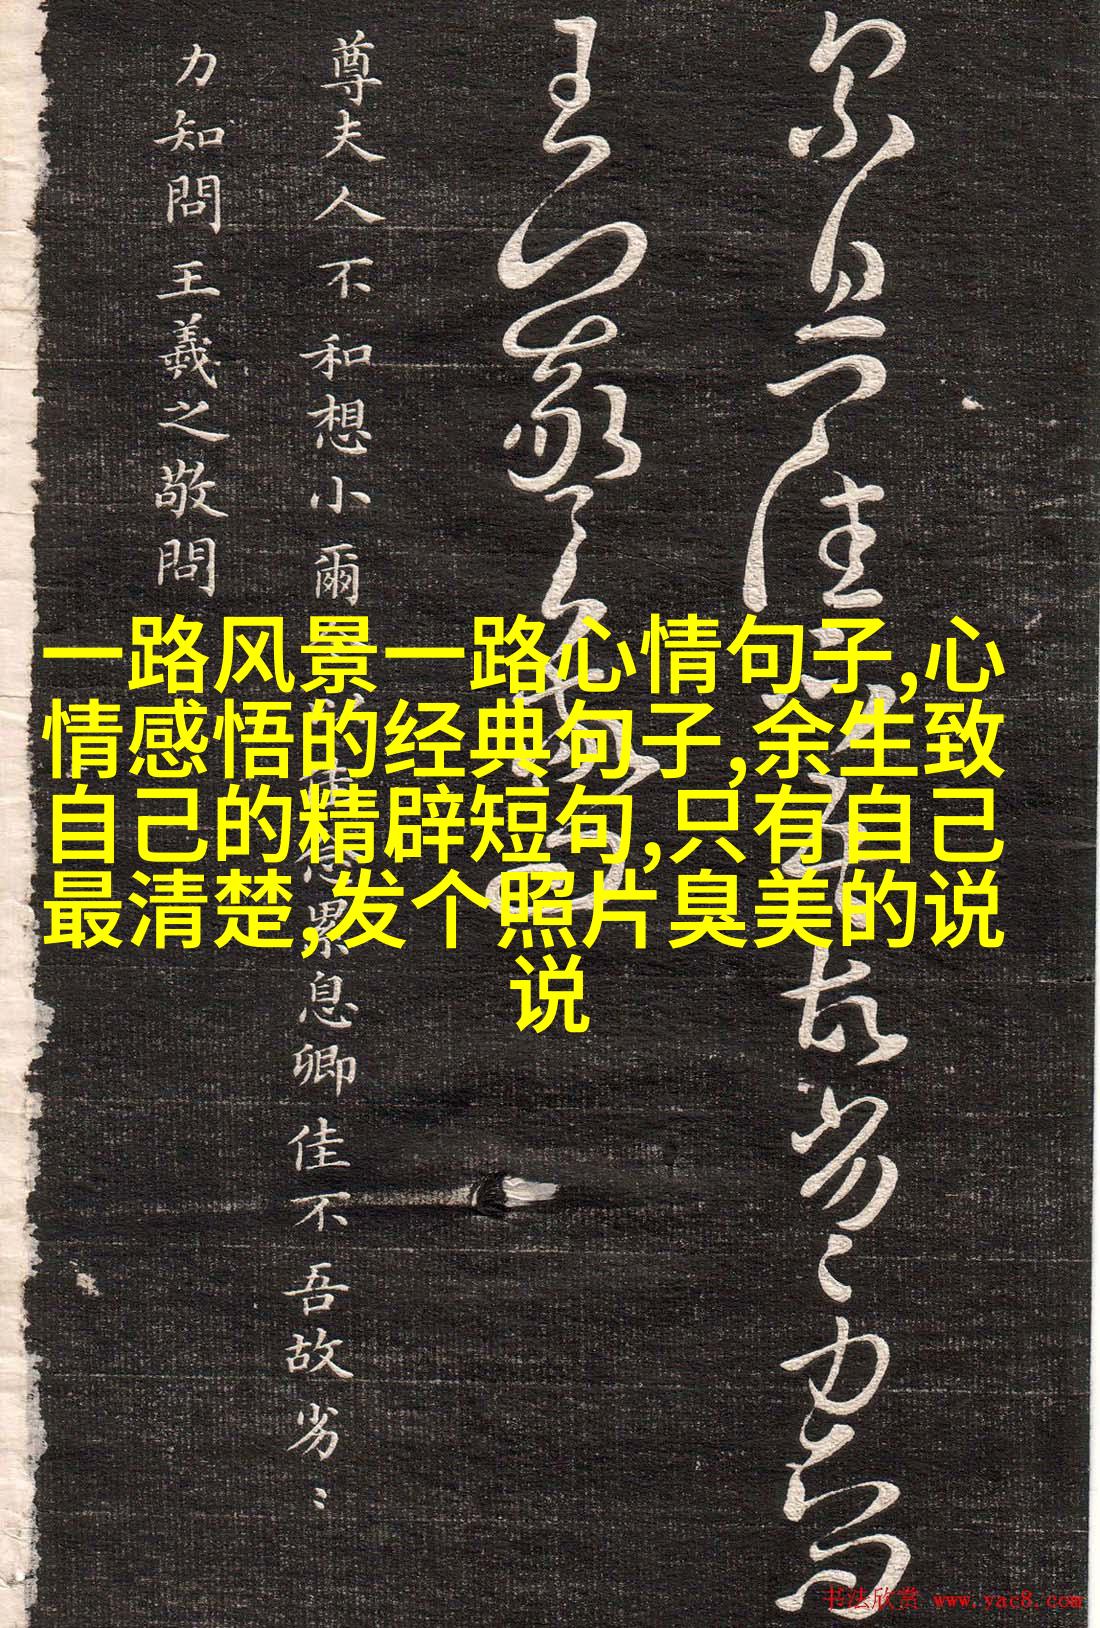 累息佳不吾故劣〻力知問
王羲之敬問
尊夫人不和想小爾佳念累息卿佳不吾故劣〻
力知問王羲之敬問
一路风景一路心情句子,心
情感悟的经典句子,余生致
自己的精辟短句,只有自己
最清楚,发个照片臭美的说
说
书法欣赏 www.yac8.com